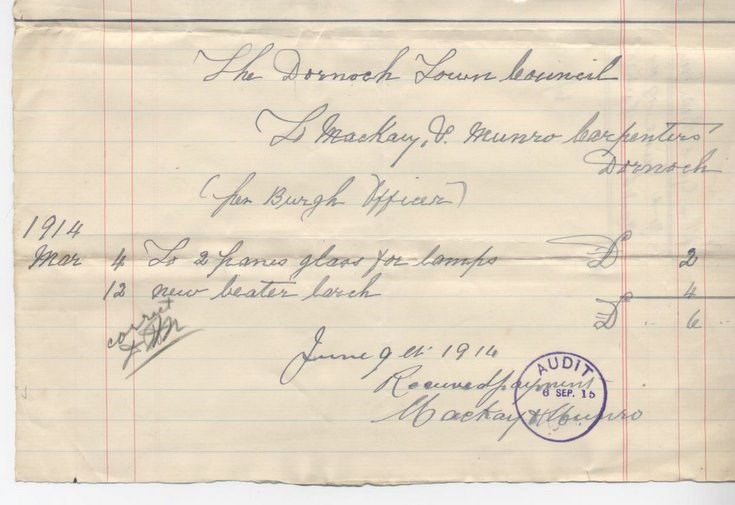 The Dornoch Town Council
To Mackay, & Munro Carpenters
Dornoch
(per Burgh Officer)
1914
Mar 4 To 2 panes glass for lamps £ 2
12 new beater larch 4
£ .. 6
correct
June 9th 1914
Received payment
Mackay & Munro
AUDIT
6 SEP. 15